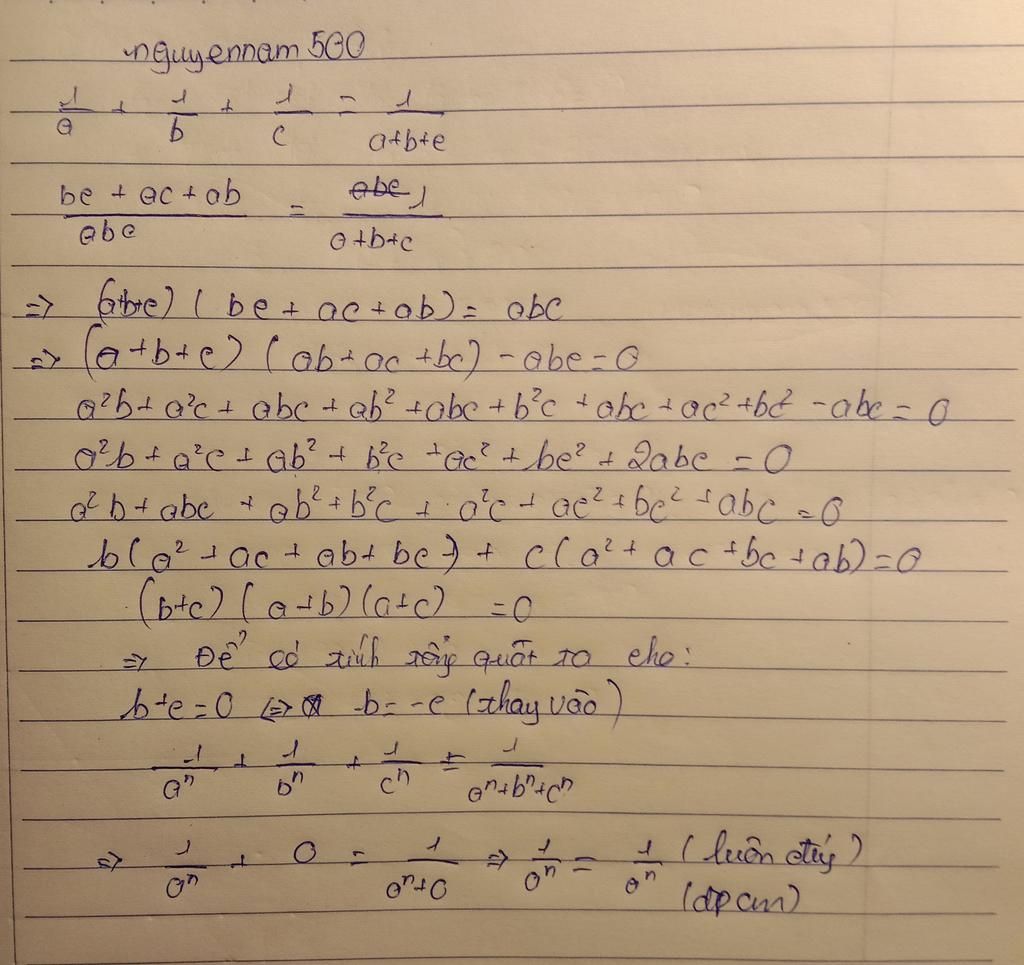 nguyennam500
1/a + 1/b + 1/c = 1/(a+b+c)
(bc + ac + ab)/abc = 1/(a+b+c)
=> (a+b+c) ( bc + ac + ab) = abc
=> (a+b+c) ( ab + ac + bc) - abc = 0
a²b + a²c + abc + ab² + abc + b²c + abc + ac² + bc² - abc = 0
a²b + a²c + ab² + b²c + ac² + bc² + 2abc = 0
a²b + abc + ab² + b²c + a²c + ac² + bc² + abc = 0
b(a² + ac + ab + bc) + c(a² + ac + bc + ab) = 0
(b+c) (a+b) (a+c) = 0
=> Để có tính tổng quát ta cho:
b+c = 0 <=> b = -c (thay vào)
1/aⁿ + 1/bⁿ + 1/cⁿ = 1/(aⁿ+bⁿ+cⁿ)
=> 1/aⁿ + 0 = 1/(aⁿ+0) => 1/aⁿ = 1/aⁿ (luôn đúng)
(đpcm)